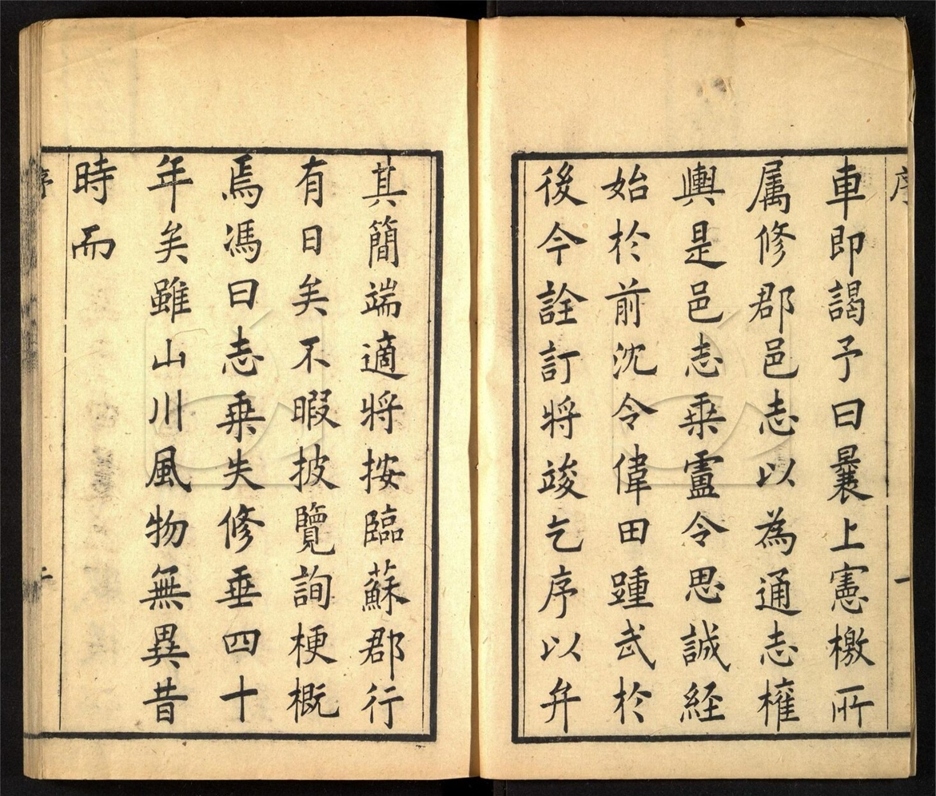 序
一
車即謁予曰曩上憲檄所
属修郡邑志以為通志榷
輿是邑志乗盧令思誠経
始於前沈令偉田踵武於
後今詮訂将竣乞序以弁
其簡端適将按臨蘇郡行
有日矣不暇披覽詢梗概
焉馮曰志乗失修垂四十
年矣雖山川風物無異昔
時而
序